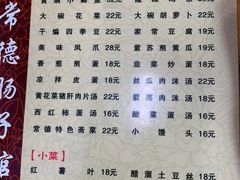 常德肠子馆
大碗花菜 22元
大碗胡萝卜 22元
干煸四季豆 22元
家常豆腐 19元
美味凤爪 29元
紫苏煎黄瓜 19元
香葱煎蛋 19元
韭菜炒蛋 18元
凉拌皮蛋 18元
丝瓜肉沫汤 22元
黄花菜猪肝肉片汤 22元
紫菜肉沫汤 22元
西红柿蛋汤 16元
酸菜蛋汤 16元
常德特色斋菜 22元
小馒头 16元
【小菜】
红薯叶 18元
醋溜土豆丝 18元